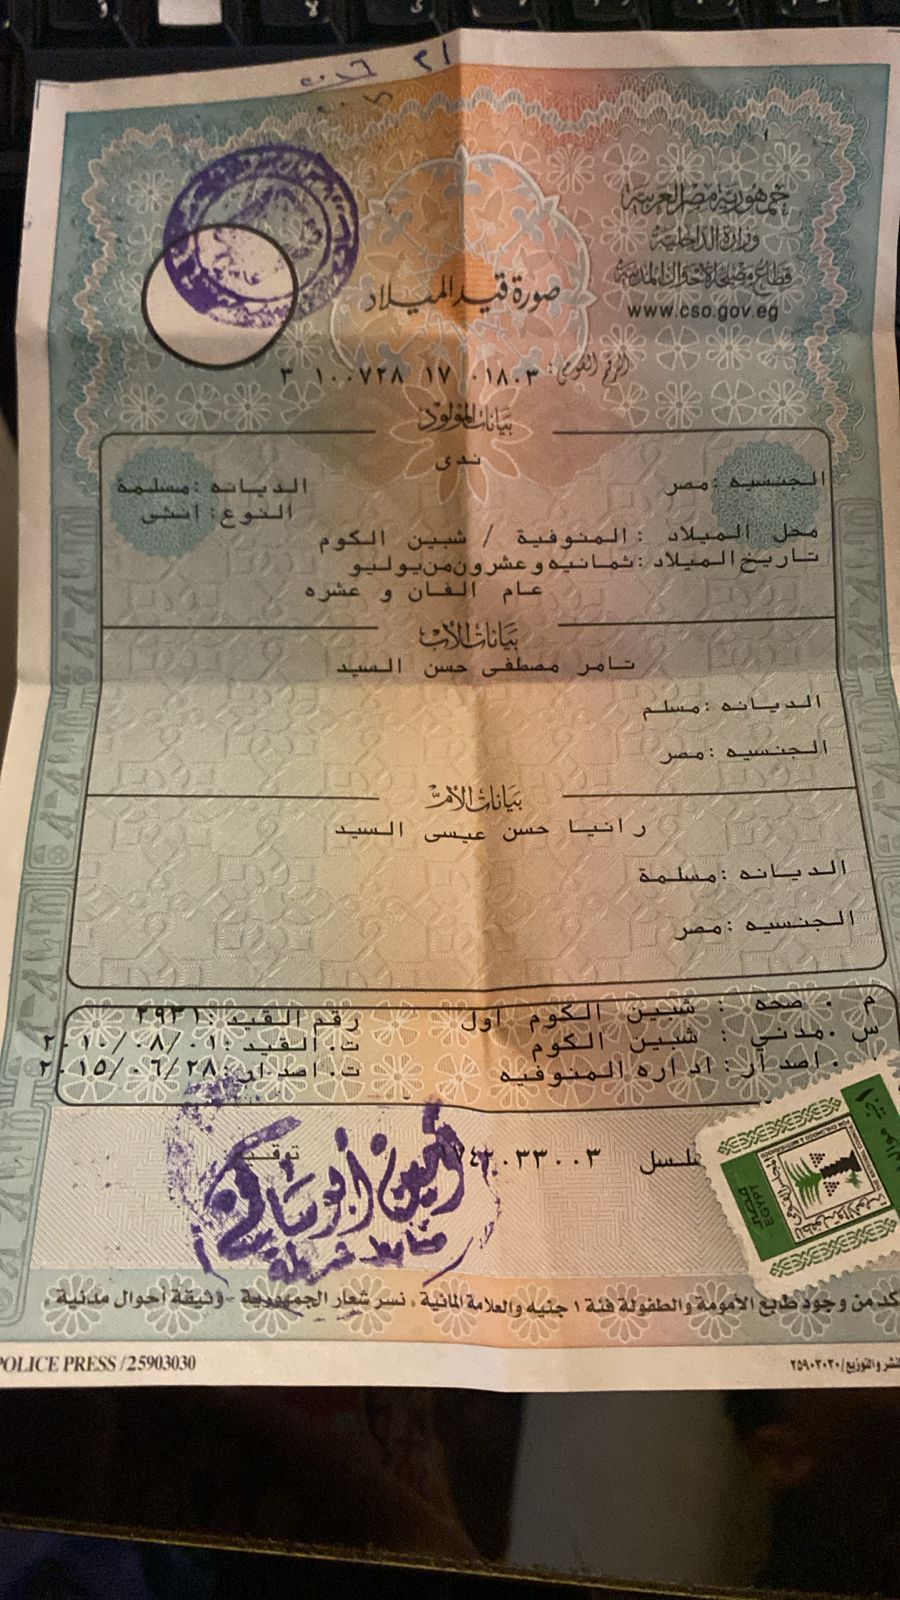 جمهورية مصر العربية
وزارة الداخلية
قطاع مصلحة الأحوال المدنية
www.cso.gov.eg
صورة قيد الميلاد
الرقم القومى: ٣ ١٠٠٧٢٨ ١٧ ٠١٨٠٣
بيانات المولود
ندى
الجنسيه :مصر
الديانه :مسلمة
النوع: انثى
محل الميلاد : المنوفية / شبين الكوم
تاريخ الميلاد :ثمانيه وعشرون من يوليو
عام الفان و عشره
بيانات الأب
تامر مصطفى حسن السيد
الديانه :مسلم
الجنسيه :مصر
بيانات الأم
رانيا حسن عيسى السيد
الديانه :مسلمة
الجنسيه :مصر
م . صحه : شبين الكوم اول رقم القيد :٢٩٣١
س .مدني : شبين الكوم ت. القيد :٢٠١٠/٠٨/٠١
. اصدار: اداره المنوفيه ت. اصدار :٢٠١٥/٠٦/٢٨
ضابط شرطة
EGYPT
كد من وجود طابع الأمومة والطفولة فئة ١ جنيه والعلامة المائية ، نسر شعار الجمهورية - وثيقة أحوال مدنية ،
POLICE PRESS /25903030
نشر والتوزيع/٢٥٩٠٣٠٣٠